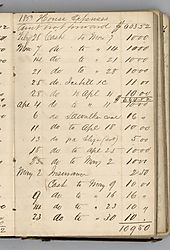 1883 House Expenses
Amt brot forward $ 633.52
Feby 28 Cash to Mar 7 10.00
Mar 7 do to " 14 10.00
14 do to " 21 10.00
21 do to " 28 10.00
25 do
28 do to Apl 4 10.00
Apr 4 do to " 11 10.00
6 do 16
11 do to Apl 18 10.00
13 do 5.00
18 do to Apl 25 10.00
25 do to May 2 10.00
May 2 Insurance 2.50
Cash to May 9 10.00
9 do to " 16 10.
16 do to " 23 10.
23 do to " 30 10.